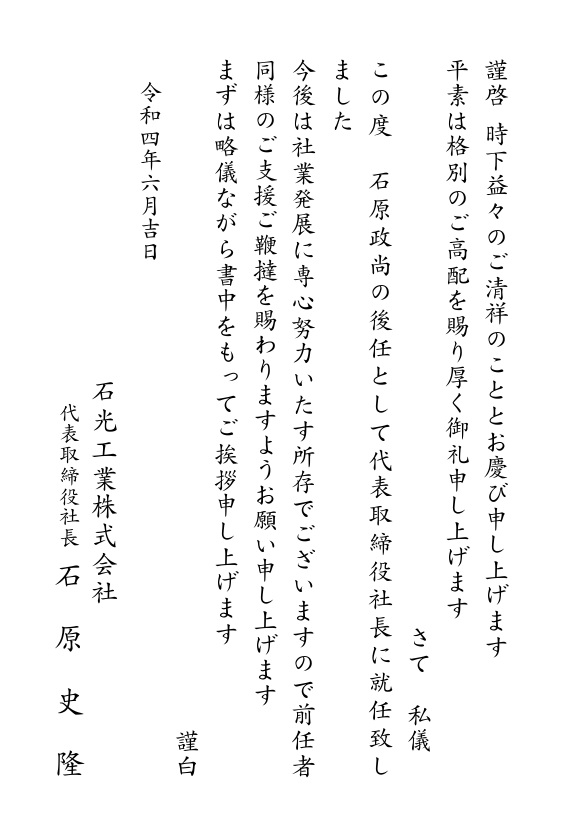 謹啓 時下益々のご清祥のこととお慶び申し上げます
平素は格別のご高配を賜り厚く御礼申し上げます
さて 私儀
この度 石原政尚の後任として代表取締役社長に就任致し
ました
今後は社業発展に専心努力いたす所存でございますので前任者
同様のご支援ご鞭撻を賜わりますようお願い申し上げます
まずは略儀ながら書中をもってご挨拶申し上げます
謹白
令和四年六月吉日
石光工業株式会社
代表取締役社長 石原史隆